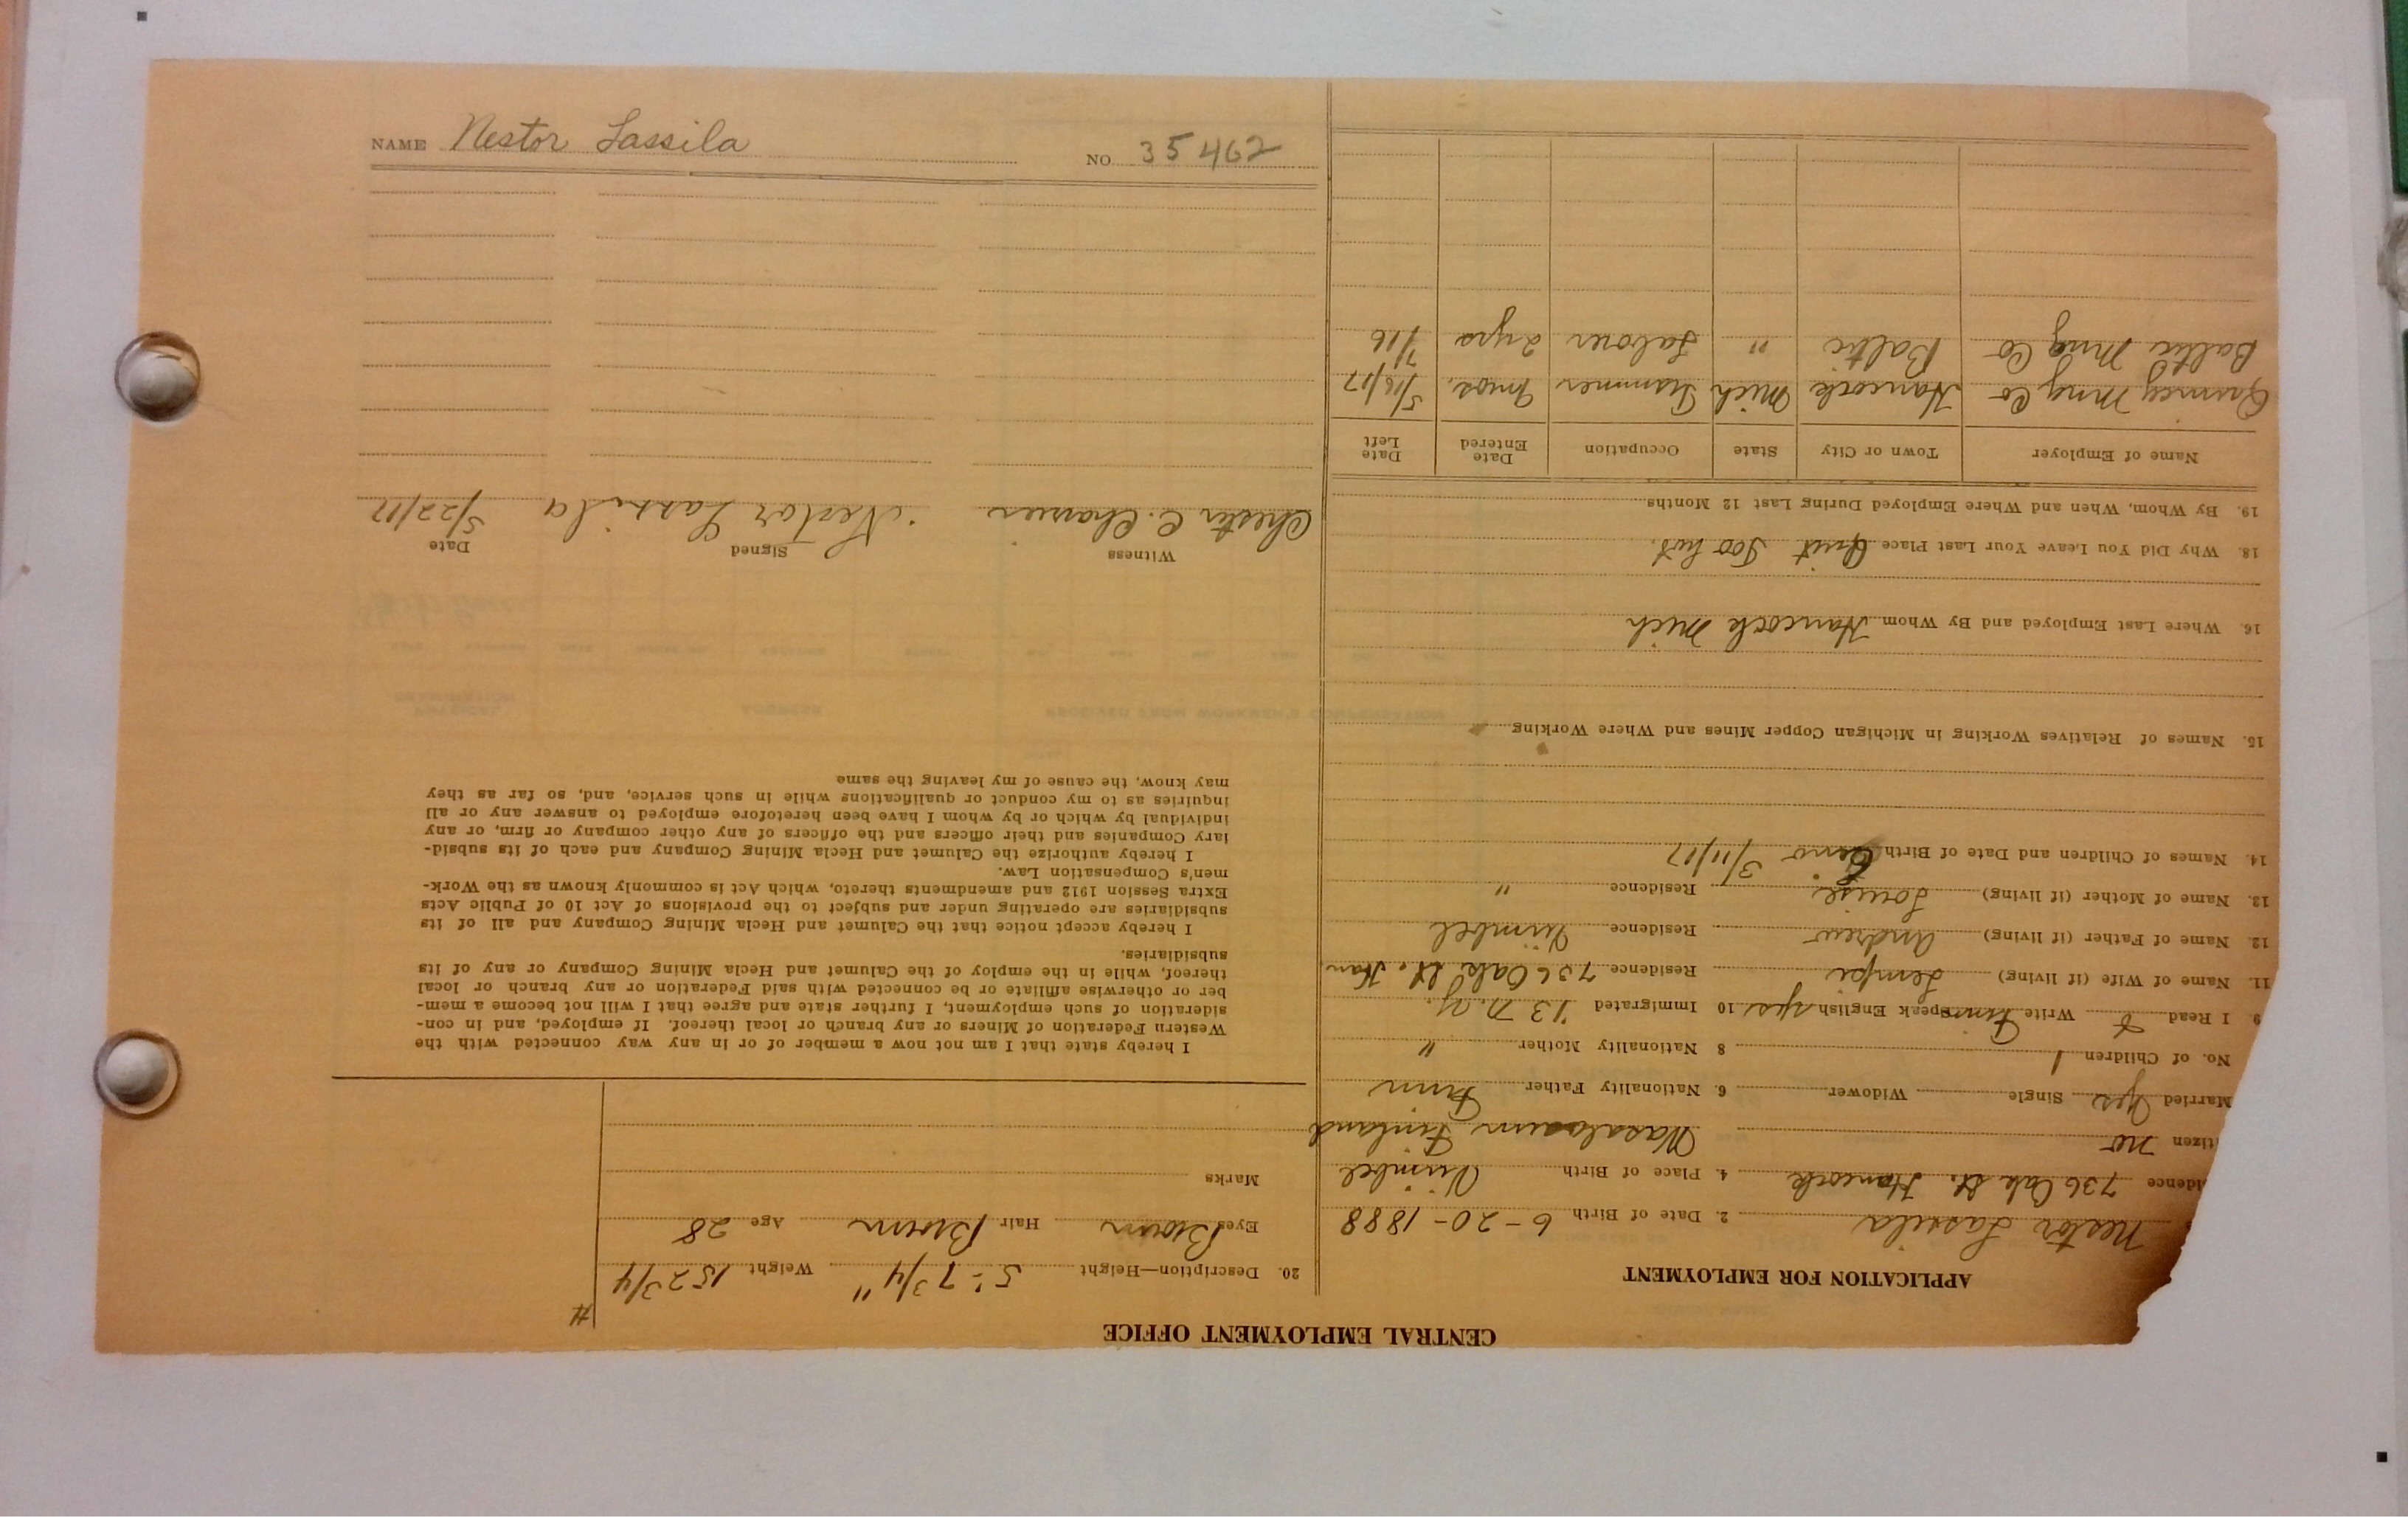 NAME Nestor Lassila NO. 35462
CENTRAL EMPLOYMENT OFFICE
APPLICATION FOR EMPLOYMENT
Nestor Lassila 2. Date of Birth 6-20-1888
idence 736 Oak St. Hancock 4. Place of Birth Vimbel
itizen no Wasalaani Finland
Married Yes Single Widower 6. Nationality Father Finn
No. of Children 1 8 Nationality Mother "
9. I Read & Write Finn Speak English yes 10 Immigrated '13 N.Y.
11. Name of Wife (if living) Lempi Residence 736 Oak St. Han.
12. Name of Father (if living) Andrew Residence Vimbel
13. Name of Mother (if living) Louise Residence "
14. Names of Children and Date of Birth 3/11/17
15. Names of Relatives Working in Michigan Copper Mines and Where Working
16. Where Last Employed and By Whom Hancock Mich
18. Why Did You Leave Your Last Place Quit Too hot.
19. By Whom, When and Where Employed During Last 12 Months
Name of Employer Town or City State Occupation Date Entered Date Left
Quincy Mng Co Hancock Mich Trammer mos. 5/16/17
Baltic Mng Co Baltic " Laborer 2 yrs 7/16
20. Description—Height 5'-7 3/4" Weight 152 3/4 #
Eyes Brown Hair Brown Age 28
Marks
I hereby state that I am not now a member of or in any way connected with the
Western Federation of Miners or any branch or local thereof. If employed, and in con-
sideration of such employment, I further state and agree that I will not become a mem-
ber or otherwise affiliate or be connected with said Federation or any branch or local
thereof, while in the employ of the Calumet and Hecla Mining Company or any of its
subsidiaries.
I hereby accept notice that the Calumet and Hecla Mining Company and all of its
subsidiaries are operating under and subject to the provisions of Act 10 of Public Acts
Extra Session 1912 and amendments thereto, which Act is commonly known as the Work-
men's Compensation Law.
I hereby authorize the Calumet and Hecla Mining Company and each of its subsid-
iary Companies and their officers and the officers of any other company or firm, or any
individual by which or by whom I have been heretofore employed to answer any or all
inquiries as to my conduct or qualifications while in such service, and, so far as they
may know, the cause of my leaving the same
Witness Signed Date
Chester C. Nestor Lassila 5/22/17